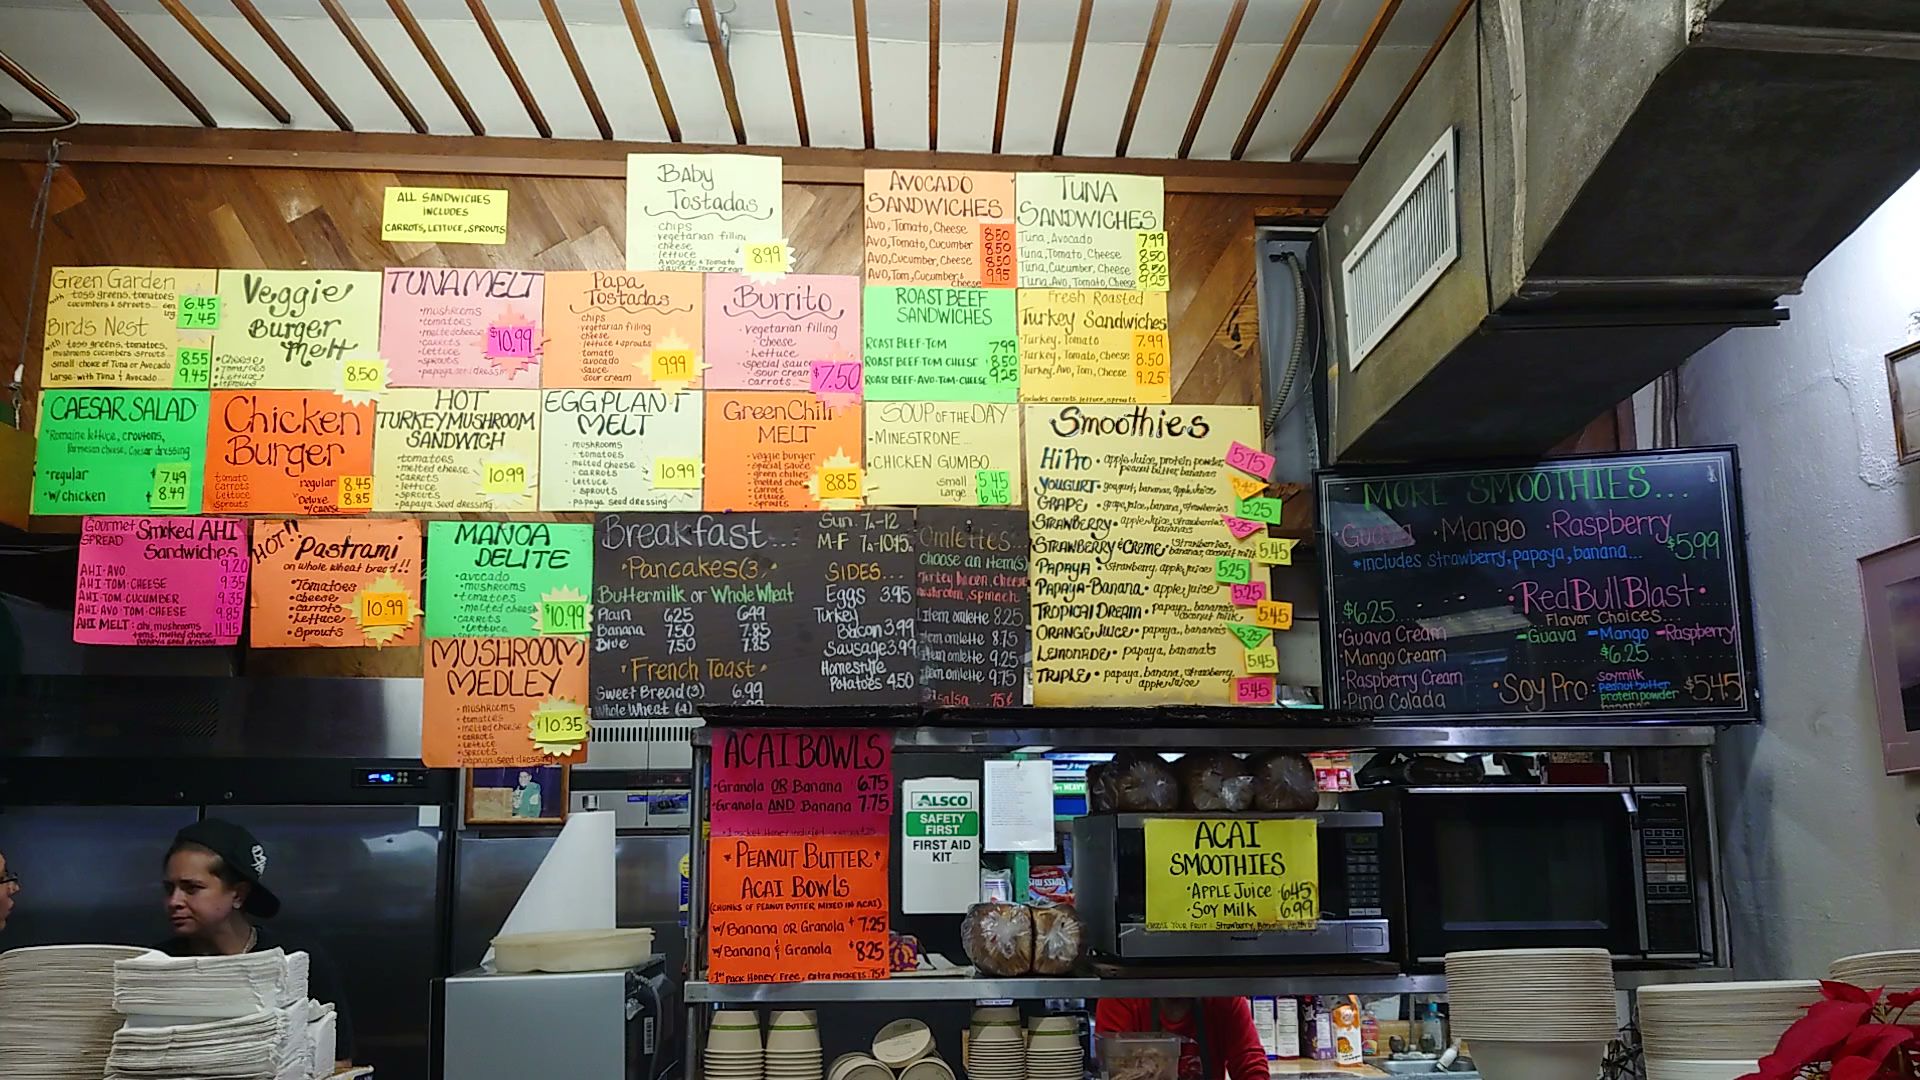 ALL SANDWICHES
INCLUDES
CARROTS, LETTUCE, SPROUTS
BABY
TOSTADAS
CHIPS
vegetarian filling
cheese
lettuce
Avocado & Tomato
sauce & sour cream
8.99
AVOCADO
SANDWICHES
Avo, Tomato, Cheese 8.50
Avo, Tomato, Cucumber 8.50
Avo, Cucumber, Cheese 8.50
Avo, Tom, Cucumber, cheese 9.95
TUNA
SANDWICHES
Tuna, Avocado 7.99
Tuna, Tomato, Cheese 8.50
Tuna, Cucumber, Cheese 8.50
Tuna, Avo, Tomato, Cheese 9.25
Green Garden
with toss greens, tomatoes
cucumbers & sprouts... 6.45
lrg. 7.45
Bird's Nest
with toss greens, tomatoes,
mushrooms cucumbers sprouts...
small choice of Tuna or Avocado 8.55
Large with Tuna & Avocado... 9.45
Veggie
Burger
Melt
• Cheese
• Tomatoes
• Lettuce
• Sprouts
8.50
TUNA MELT
• mushrooms
• tomatoes
• melted cheese
• carrots
• lettuce
• sprouts
• papaya seed dressing
$10.99
Papa
Tostadas
chips
vegetarian filling
cheese
lettuce & sprouts
tomato
avocado
sauce
sour cream
9.99
Burrito
• vegetarian filling
• cheese
• lettuce
• special sauce
• sour cream
• carrots
$7.50
ROAST BEEF
SANDWICHES
ROAST BEEF-TOM 7.99
ROAST BEEF TOM CHEESE 8.50
ROAST BEEF-AVO-TOM-CHEESE 9.25
Fresh Roasted
Turkey Sandwiches
• Turkey, Tomato 7.99
• Turkey, Tomato, Cheese 8.50
• Turkey, Avo, Tom, Cheese 9.25
includes carrots, lettuce, sprouts
CAESAR SALAD
• Romaine lettuce, croutons,
Parmesan cheese, Caesar dressing
• regular $7.49
• w/chicken $8.49
Chicken
Burger
tomato
carrots
lettuce
sprouts
regular 8.45
Deluxe w/cheese 8.85
HOT
TURKEY MUSHROOM
SANDWICH
• tomatoes
• melted cheese
• carrots
• lettuce
• sprouts
• papaya seed dressing
10.99
EGGPLANT
MELT
• mushrooms
• tomatoes
• melted cheese
• carrots
• lettuce
• sprouts
papaya seed dressing
10.99
Green Chili
MELT
• veggie burger
• special sauce
• green chilies
• melted chee
• carrots
• lettuce
• sprouts
8.85
SOUP OF THE DAY
• MINESTRONE...
• CHICKEN GUMBO
small 5.45
Large 6.45
Smoothies
Hi Pro • apple juice, protein powder,
peanut butter, bananas 5.75
YOUGURT • yougurt, bananas, apple juice
GRAPE • grape juice, bananas, strawberries 5.25
STRAWBERRY • apple juice, strawberries
bananas 5.25
STRAWBERRY & CREME • strawberries,
bananas, coconut milk 5.45
PAPAYA • strawberry, apple juice 5.25
PAPAYA-BANANA • apple juice 5.25
TROPICAL DREAM • papaya, bananas
coconut milk 5.45
ORANGE JUICE • papaya, bananas 5.25
LEMONADE • papaya, bananas 5.45
TRIPLE • papaya, banana, strawberry,
apple juice 5.45
MORE SMOOTHIES...
• Guava • Mango • Raspberry
*includes strawberry, papaya, banana... $5.99
$6.25
• Guava Cream
• Mango Cream
• Raspberry Cream
• Pina Colada
• Red Bull Blast •
Flavor Choices...
- Guava - Mango - Raspberry
$6.25
• Soy Pro: soymilk
peanut butter
protein powder
bananas
$5.45
Gourmet SPREAD
Smoked AHI
Sandwiches
AHI-AVO 9.20
AHI-TOM-CHEESE 9.35
AHI-TOM-CUCUMBER 9.35
AHI-AVO-TOM-CHEESE 9.85
AHI MELT: ahi, mushrooms 11.45
toms, melted cheese
papaya seed dressing
HOT!! Pastrami
on whole wheat bread!!
• Tomatoes
• cheese
• carrots
• Lettuce
• Sprouts
10.99
MANOA
DELITE
• avocado
• mushrooms
• tomatoes
• melted cheese
• carrots
• lettuce
$10.99
MUSHROOM
MEDLEY
• mushrooms
• tomatoes
• melted cheese
• carrots
• lettuce
• sprouts
• papaya seed dressing
$10.35
Breakfast...
Sun. 7A-12
M-F 7A-10:45
• Pancakes(3)
Buttermilk or Whole Wheat
Plain 6.25 6.49
Banana 7.50 7.85
Blue 7.50 7.85
• French Toast •
Sweet Bread (3) 6.99
Whole Wheat (4)
SIDES...
Eggs 3.95
Turkey
Bacon 3.99
Sausage 3.99
Homestyle
Potatoes 4.50
Omlettes...
choose an item(s)
Turkey bacon, cheese
mushroom, spinach
1 item omlette 8.25
item omlette 8.75
item omlette 9.25
item omlette 9.75
Salsa 75¢
ACAI BOWLS
• Granola OR Banana 6.75
• Granola AND Banana 7.75
* PEANUT BUTTER *
ACAI BOWLS
(CHUNKS OF PEANUT BUTTER MIXED IN ACAI)
w/Banana OR Granola $7.25
w/Banana & Granola $8.25
1st PACK HONEY FREE, extra packets .75¢
ALSCO
SAFETY
FIRST
FIRST AID
KIT
ACAI
SMOOTHIES
• APPLE JUICE 6.45
• SOY MILK 6.99
CHOOSE YOUR FRUIT: Strawberry, Banana,
Panasonic